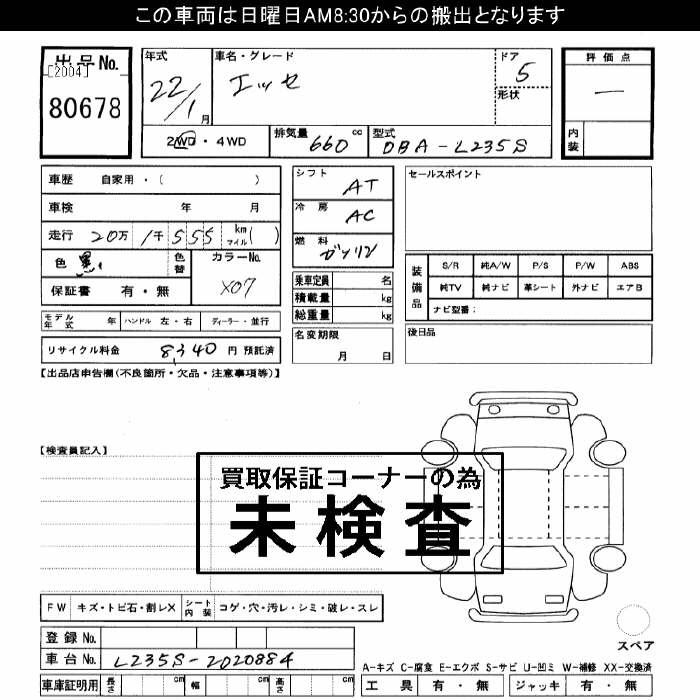 この車両は日曜日AM8:30からの搬出となります
出品No.
[2004]
80678
年式
22/1月
車名・グレード
エッセ
ドア
5
形状
評価点
―
内装
2WD・4WD
排気量 660 cc
型式 DBA-L235S
車歴 自家用・( )
車検 年 月
走行 20万 1千 555 km マイル ( )
色 黒 色替 カラーNo. X07
保証書 有・無
シフト AT
冷房 AC
燃料 ガソリン
乗車定員 名
積載量 kg
総重量 kg
セールスポイント
装備品
S/R 純A/W P/S P/W ABS
純TV 純ナビ 革シート 外ナビ エアB
ナビ型番:
モデル年式 年 ハンドル 左・右 ディーラー・並行
リサイクル料金 8,340 円 預託済
名変期限
月 日
後日品
【出品店申告欄(不良箇所・欠品・注意事項等)】
【検査員記入】
買取保証コーナーの為
未検査
FW キズ・トビ石・割レX シート内装 コゲ・穴・汚レ・シミ・破レ・スレ
スペア
登録No.
車台No. L235S-2020884
A-キズ C-腐食 E-エクボ S-サビ U-凹ミ W-補修 XX-交換済
車庫証明用 長さ cm 幅 cm 高さ cm
工具 有・無 ジャッキ 有・無